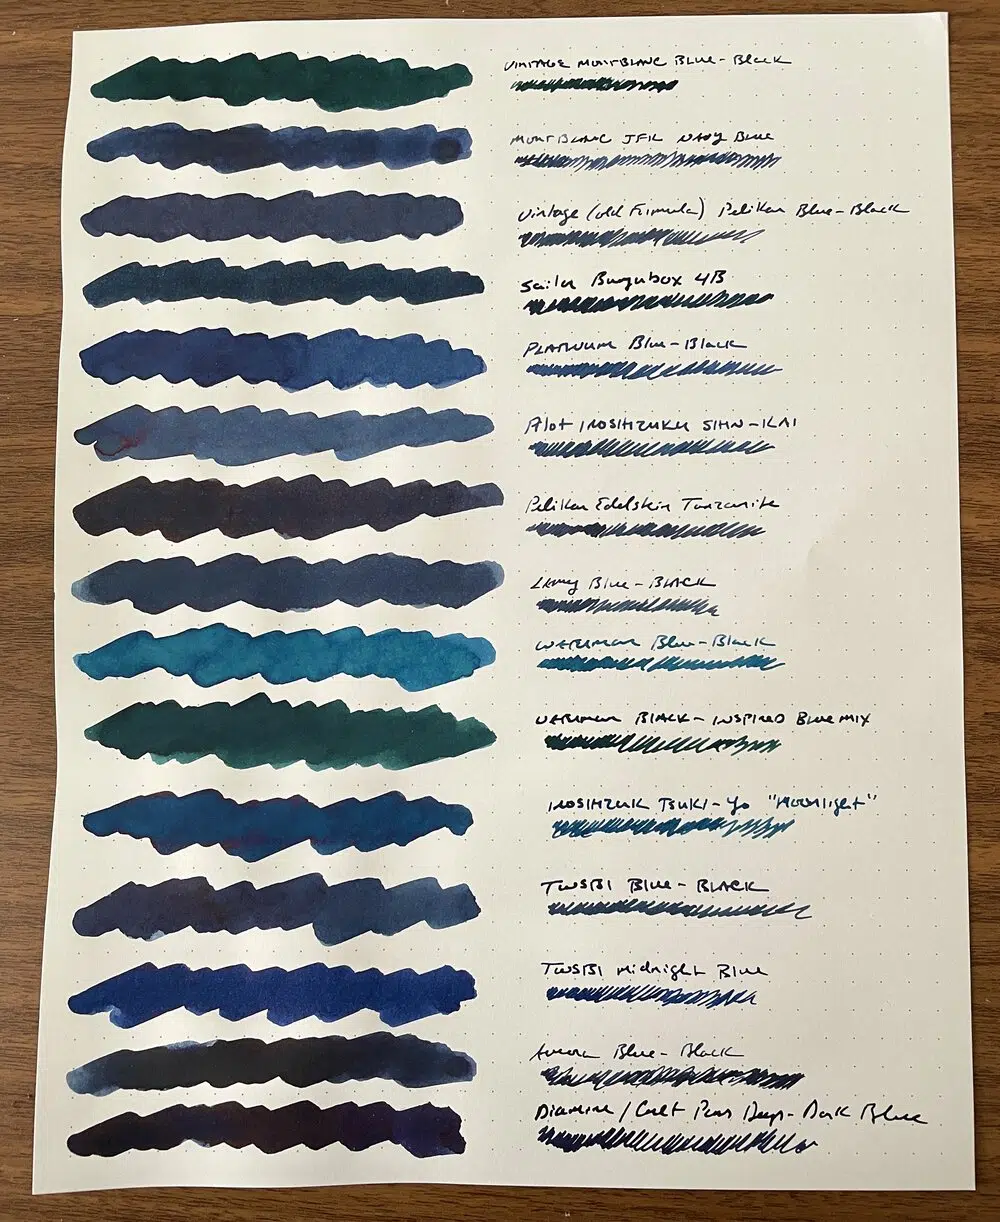 VINTAGE MONTBLANC BLUE-BLACK
MONTBLANC JFK NAVY BLUE
Vintage (old Formula) Pelikan Blue-Black
Sailor Bungubox 4B
PLATINUM Blue-Black
Pilot IROSHIZUKU SHIN-KAI
Pelikan Edelstein Tanzanite
LAMY Blue-BLACK
WATERMAN Blue-Black
WATERMAN BLACK-INSPIRED Blue MIX
IROSHIZUK TSUKI-Yo "Moonlight"
TWSBI Blue-BLACK
TWSBI Midnight Blue
Aurora Blue-Black
Diamine / Cult Pens Deep-Dark Blue